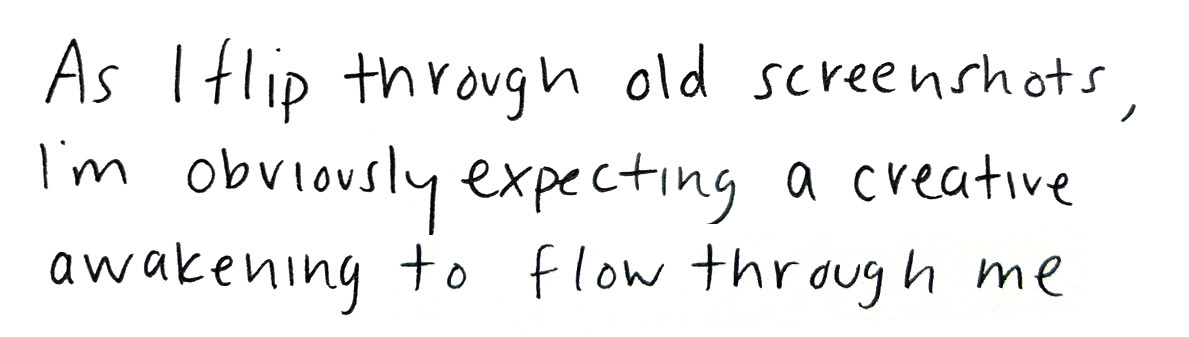 As I flip through old screenshots,
I'm obviously expecting a creative
awakening to flow through me